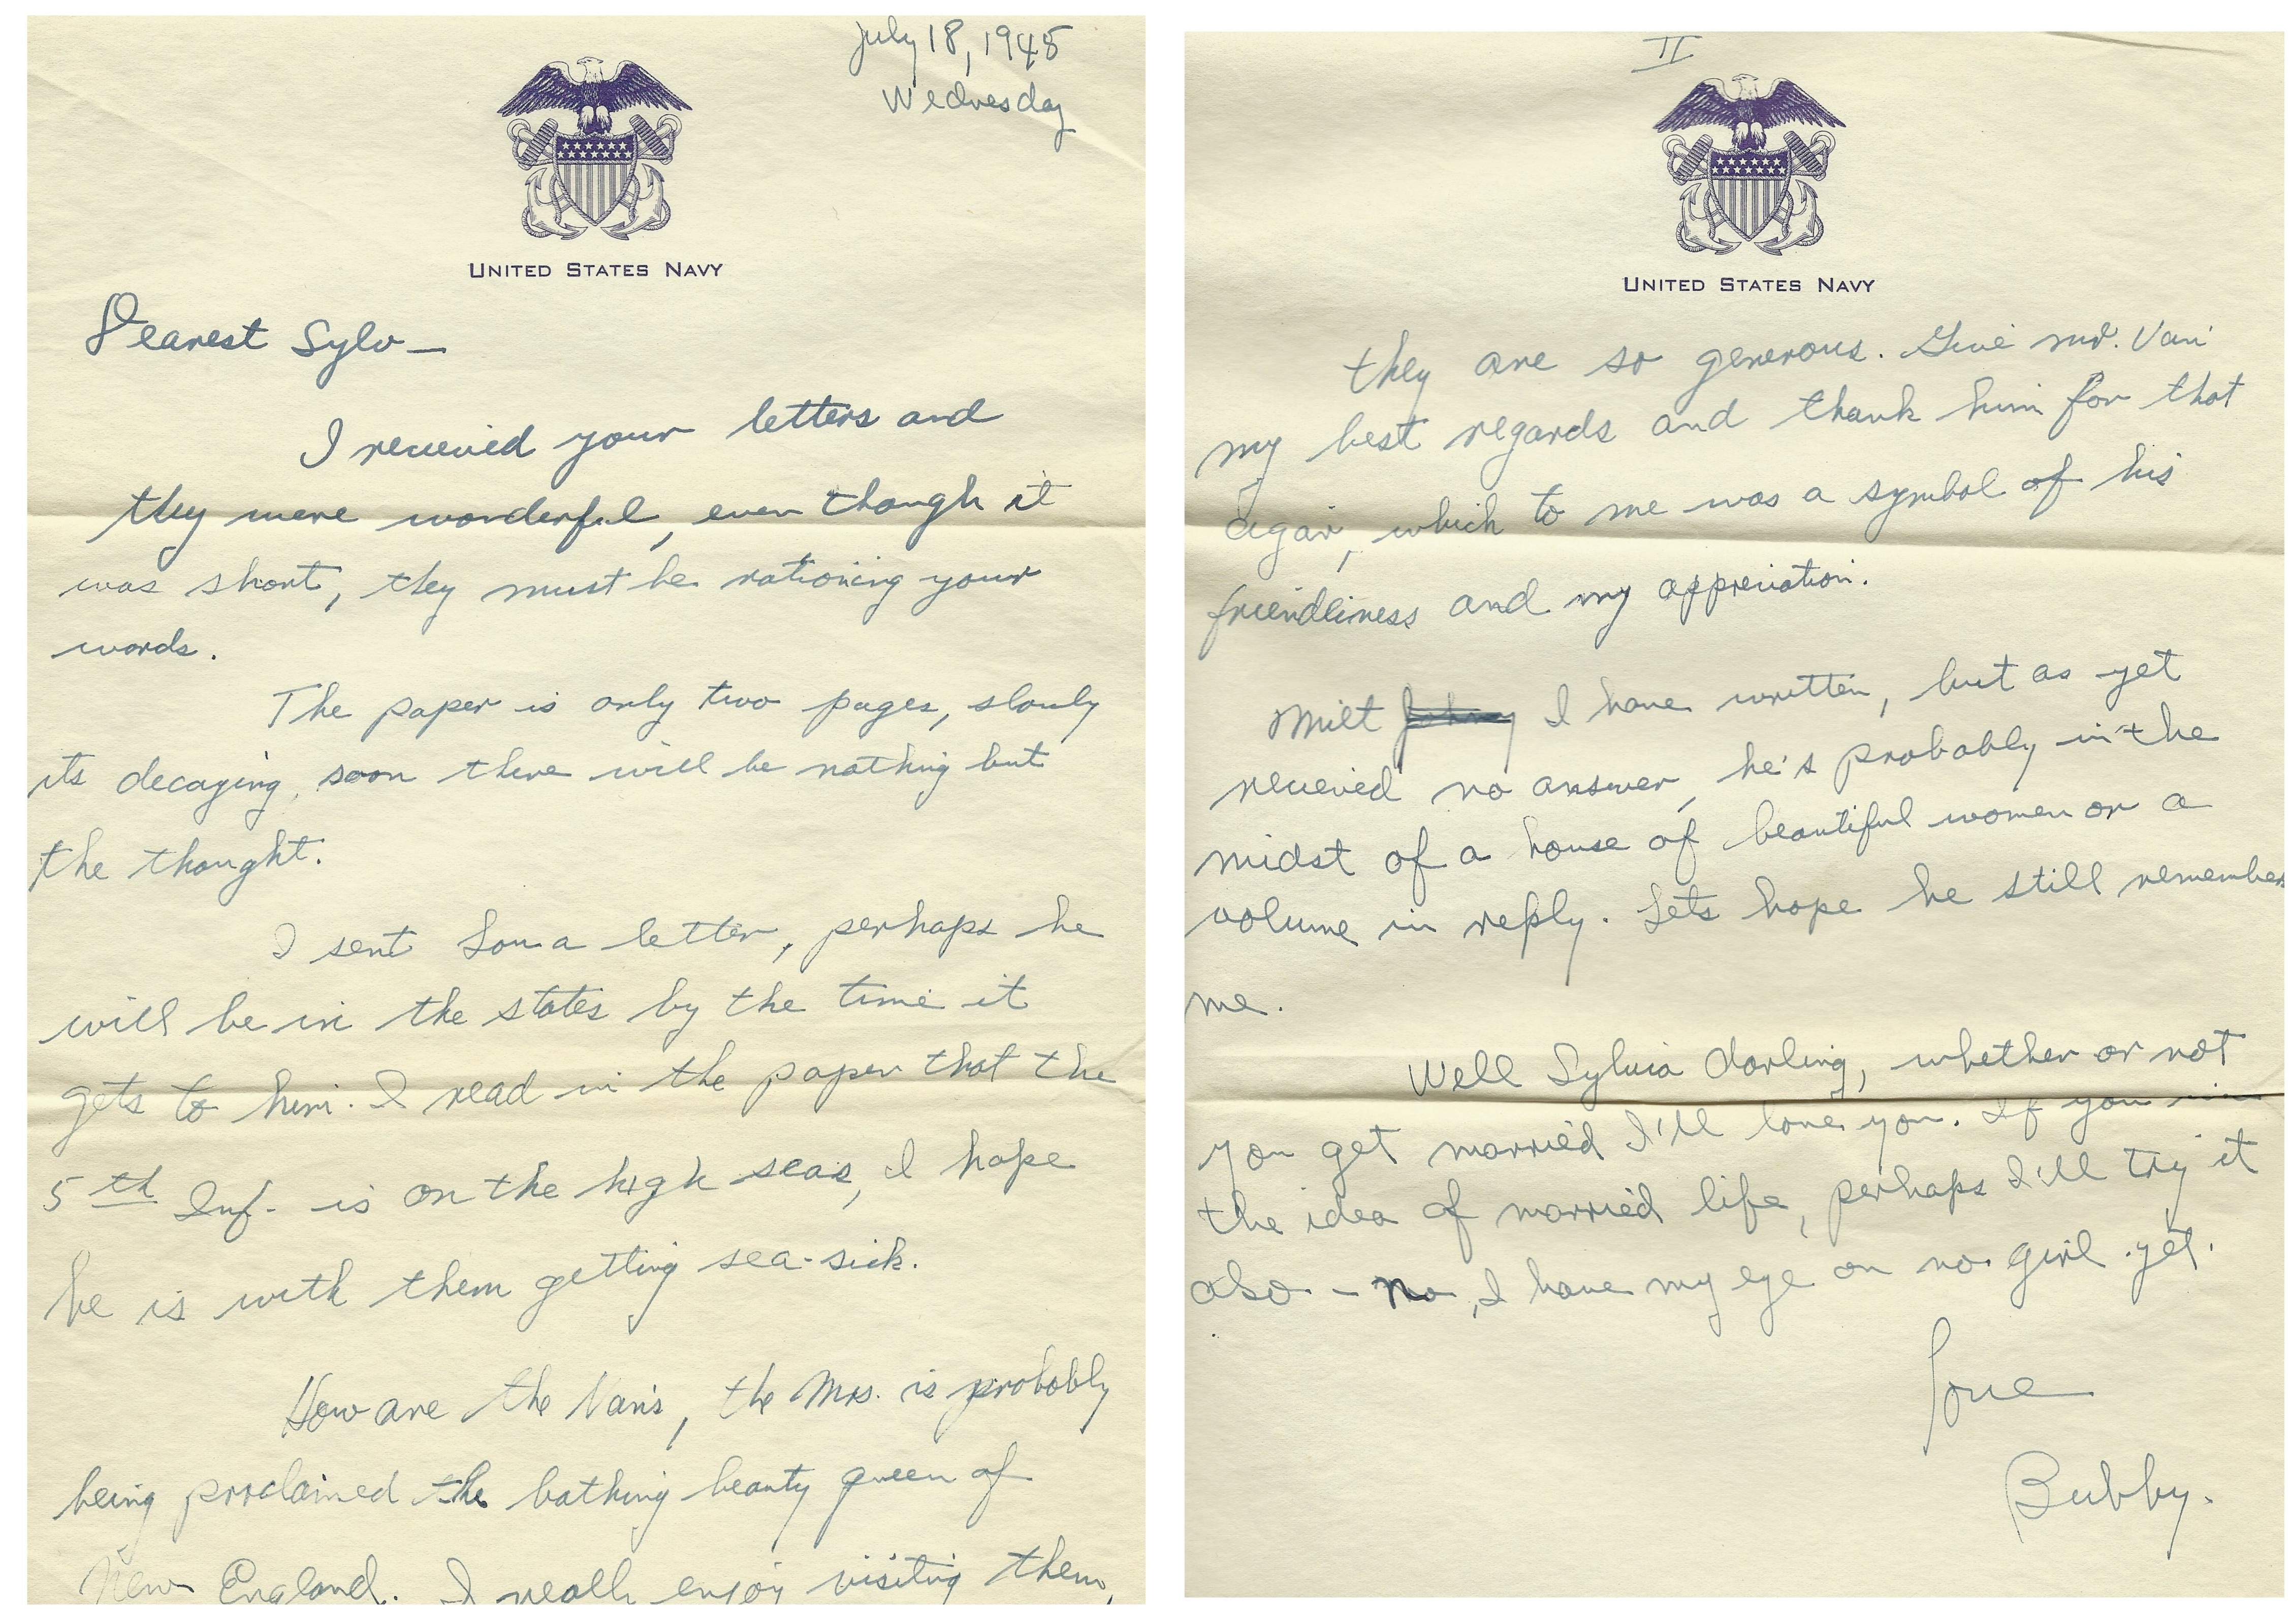 July 18, 1945
Wednesday
UNITED STATES NAVY
Dearest Sylv—
I received your letters and
they were wonderful, even though it
was short, they must be rationing your
words.
The paper is only two pages, slowly
its decaying, soon there will be nothing but
the thought.
I sent Lou a letter, perhaps he
will be in the states by the time it
gets to him. I read in the paper that the
5th Inf. is on the high seas, I hope
he is with them getting sea-sick.
How are the Van's, the Mrs. is probably
being proclaimed the bathing beauty queen of
New England. I really enjoy visiting them,
II
UNITED STATES NAVY
they are so generous. Give mr. Van
my best regards and thank him for that
cigar, which to me was a symbol of his
friendliness and my appreciation.
Milt I have written, but as yet
received no answer, he's probably in the
midst of a house of beautiful women or a
volume in reply. Lets hope he still remembers
me.
Well Sylvia darling, whether or not
you get married I'll love you. If you
the idea of married life, perhaps I'll try it
also - no, I have my eye on no girl yet.
Love
Bubby.